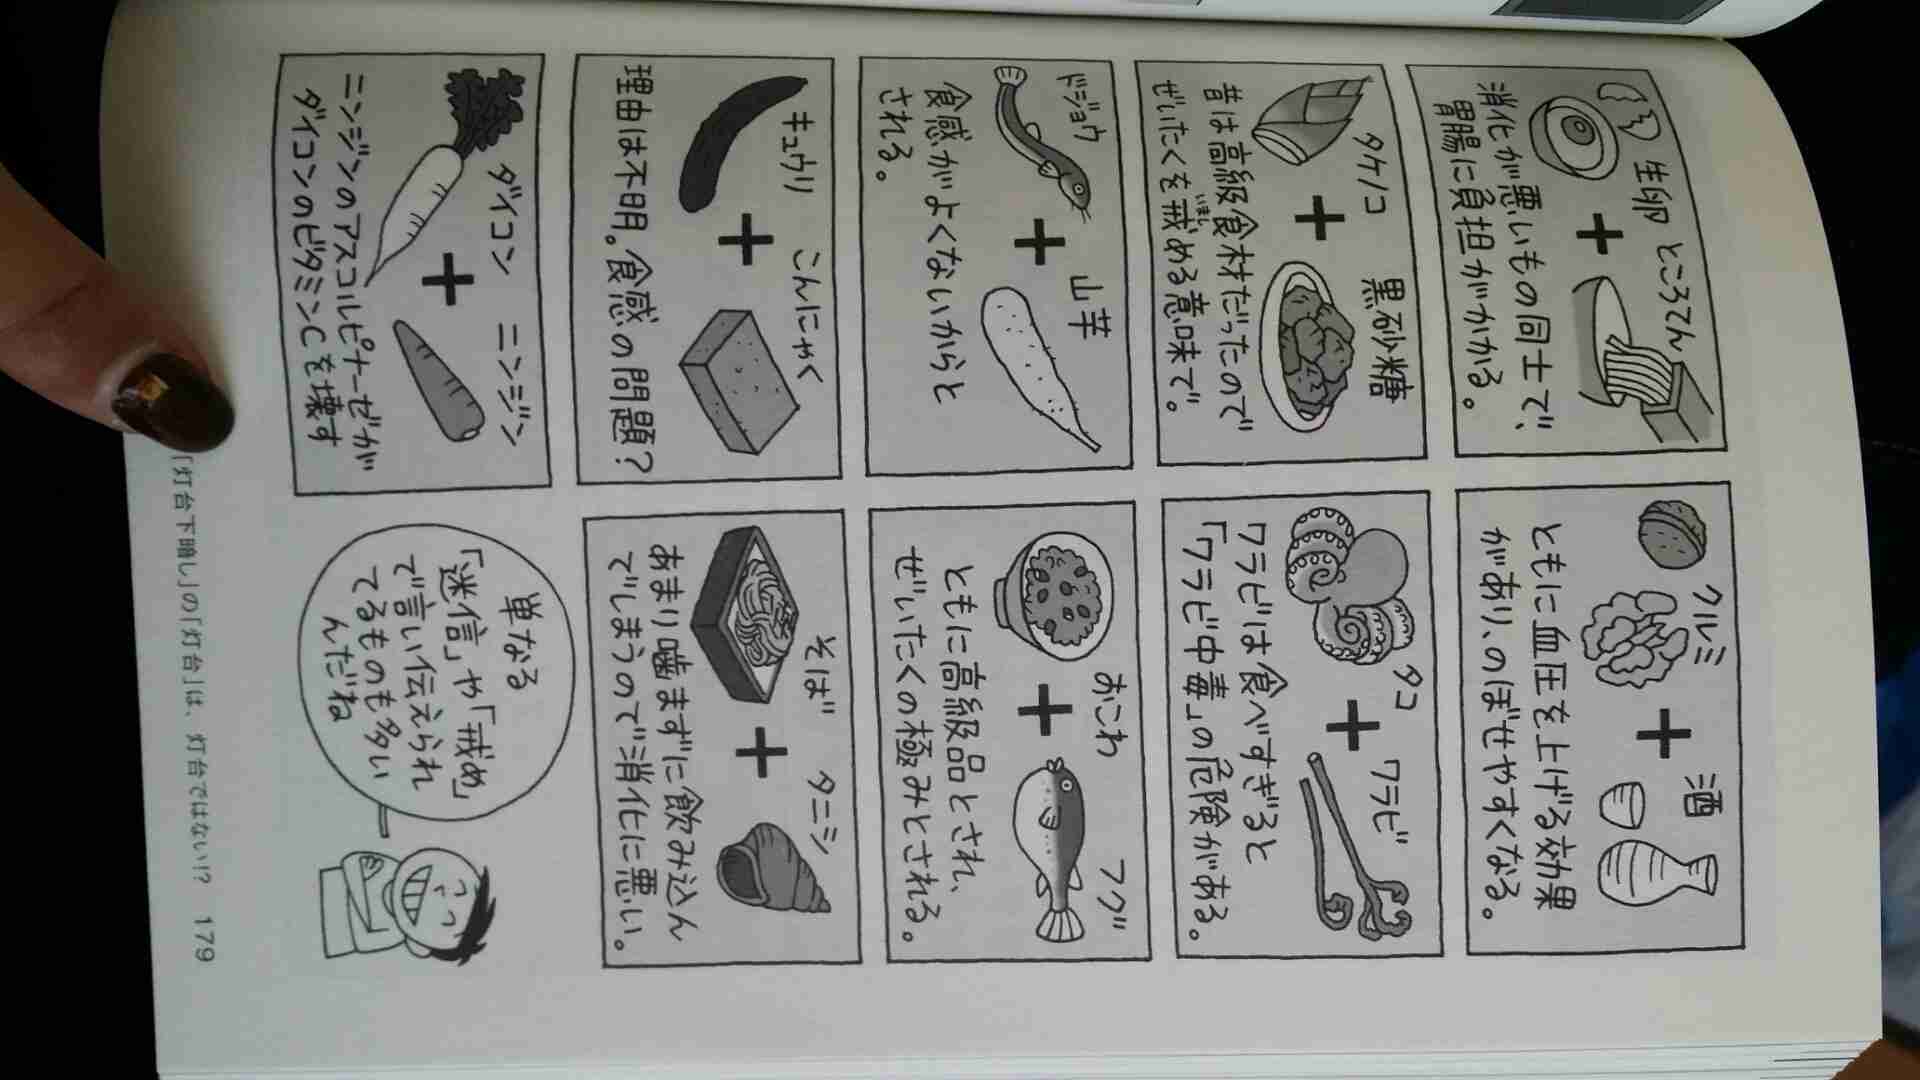 生卵
ところてん
消化が悪いもの同士で、
胃腸に負担がかかる。
クルミ
酒
ともに血圧を上げる効果
があり、のぼせやすくなる。
タケノコ
黒砂糖
昔は高級食材だったので
ぜいたくを戒める意味で。
いまし
タコ
ワラビ
ワラビは食べすぎると
「ワラビ中毒」の危険がある。
ドジョウ
山芋
食感がよくないからと
される。
おこわ
フグ
ともに高級品とされ、
ぜいたくの極みとされる。
キュウリ
こんにゃく
理由は不明。食感の問題?
そば
タニシ
あまり噛まずに飲み込ん
でしまうので消化に悪い。
ダイコン
ニンジン
ニンジンのアスコルビナーゼが
ダイコンのビタミンCを壊す
単なる
「迷信」や「戒め」
で言い伝えられ
てるものも多い
んだね
「灯台下暗し」の「灯台」は、灯台ではない!? 179